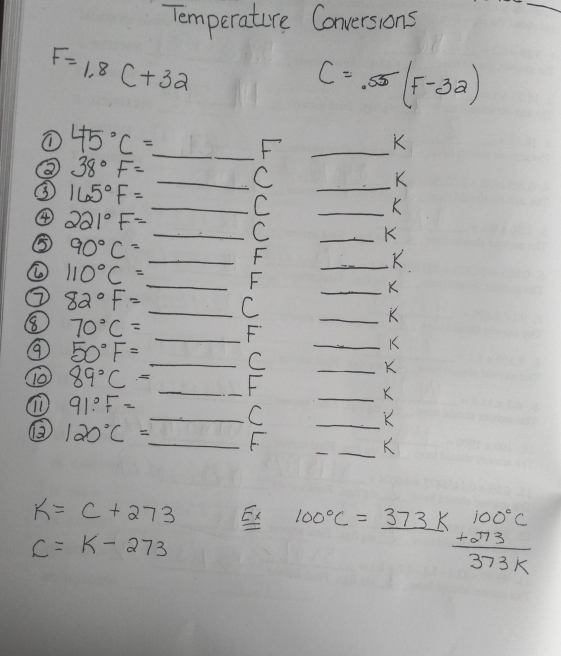 Temperature Conversions
F= 1.8 C+32
C = .55 (F-32)
① 45°C = ________ F ______ K
② 38° F= ________ C ______ K
③ 165°F= ________ C ______ K
④ 221° F= ________ C ______ K
⑤ 90°C = ________ F ______ K.
⑥ 110°C = ________ F ______ K
⑦ 82° F= ________ C ______ K
⑧ 70°C = ________ F ______ K
⑨ 50°F= ________ C ______ K
⑩ 89°C = ________ F ______ K
⑪ 91°F= ________ C ______ K
⑫ 120°C = ________ F ______ K
K= C+273 Ex 100°C = 373 K 100°C
C= K-273 +273
373 K